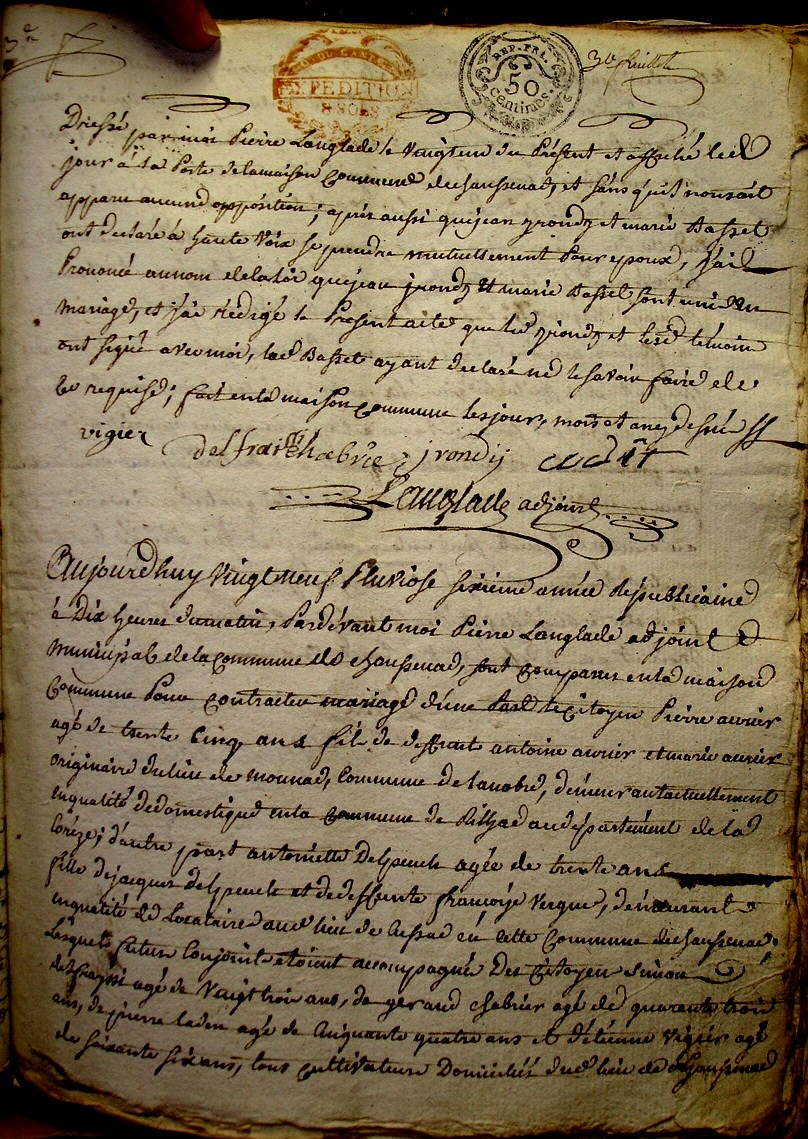 3e
EXPEDITION
8 SOLS
REP. FRA.
50
centimes.
3e feuillet
Dressé par moi Pierre Langlade le vaigteun du Présent et affiché led
jour à la Porte de la maison commune de chaussenac, et sans qu'il nous ait
apparu aucune opposition; après aussi que jean jrondy et marie Basset
ont declaré à haute voix se prendre mutuellement Pour epoux, j'ai
Prononcé au nom de la loi que jean jrondy et marie Basset sont unis en
mariage, et j'ai rédigé le Présent acte que led jrondy et lesd témoins
ont signé avec moi, lad Basset ayant declaré ne le savoir faire de
ce requise; fait en la maison commune les jour, mois et an q dessus
vigier delfraissi chabrie jrondy
Langlade adjoint
Aujourd'huy vingt neuf Pluviose sixieme année Républicaine
à Dix heures du matin, Pardevant moi Pierre Langlade adjoint
municipal de la commune de chaussenac, sont comparus en la maison
commune Pour contracter mariage d'une Part le citoyen Pierre aurier
agé de trente cinq ans fils de deffunt antoine aurier et marie aurier
originaire du lieu de mounac, commune de lanobre, demeurant actuellement
en qualité de domestique en la commune de Rilhac au departement de la
Corèze; d'autre part antoinette Delpeuch agée de trente ans
fille de jacques delpeuch et de deffunte françoise vergne, demeurant
en qualité de Locataire aud lieu de en cette Commune de chaussenac.
Lesquels futurs Conjoints etoient accompagnés Des Citoyen simon
delfraissi agé de vaigt trois ans, de geraud chabrier agé de quarante trois
ans, de pierre laden agé de cinquante quatre ans et d'etienne vigier agé
de soixante six ans, tous cultivateurs Domiciliés dud lieu de chaussenac